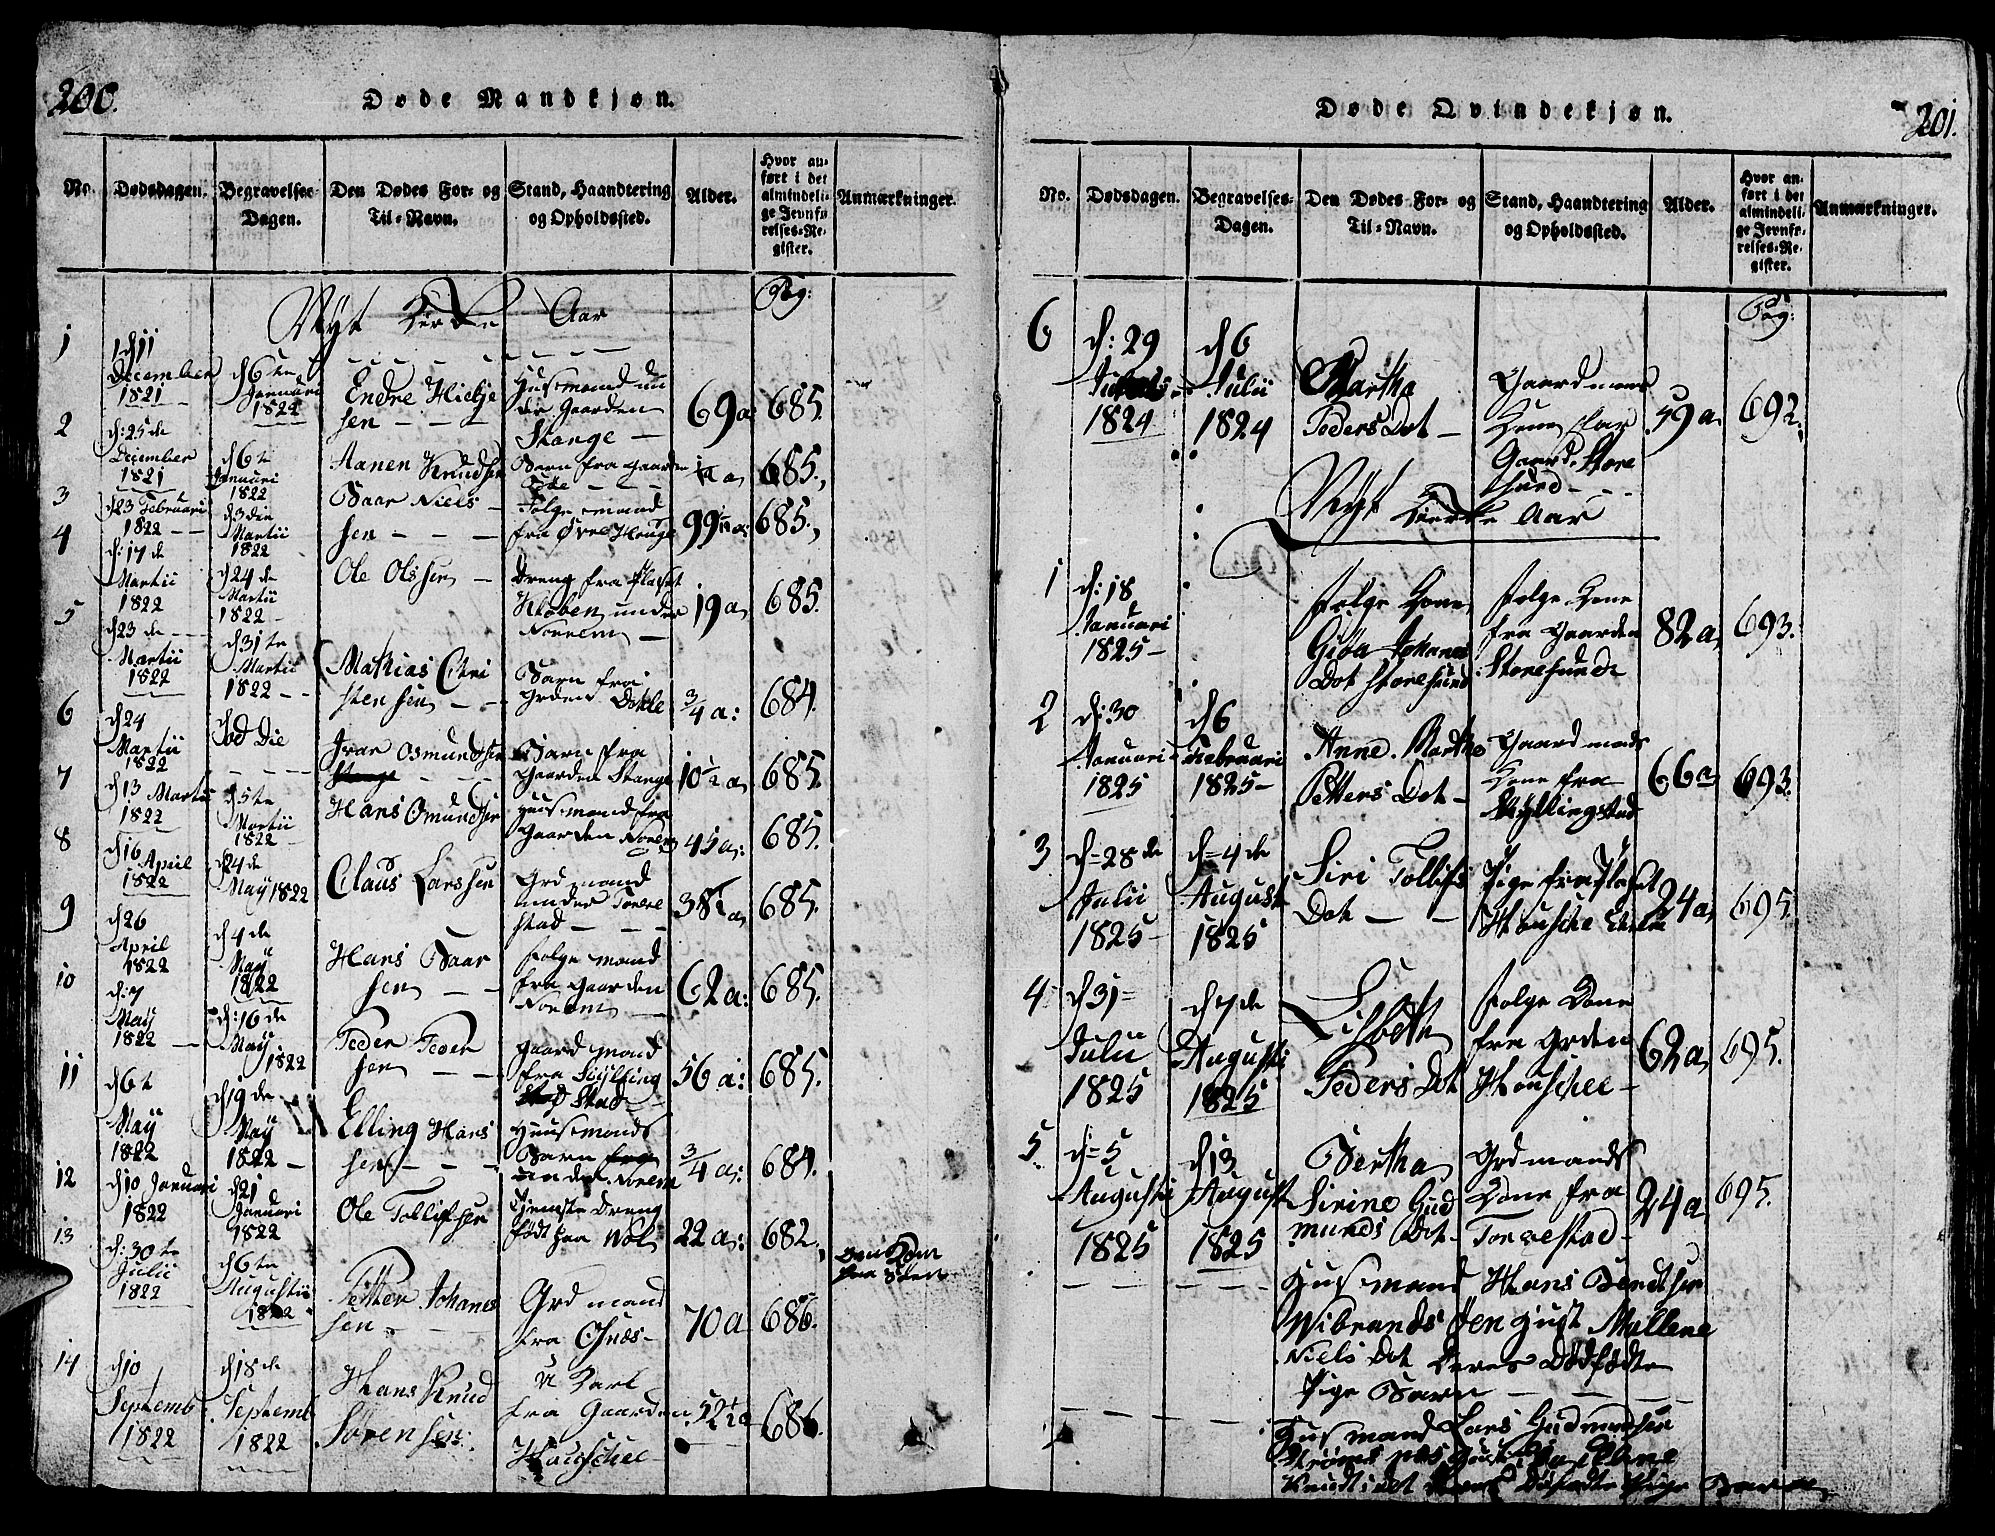 200.
Døde Mandkjøn.
No.
Dødsdagen.
Begravelses-
Dagen.
Den Dødes For- og
Til-Navn.
Stand, Haandtering
og Opholdssted.
Alder.
Hvor an-
ført i det
almindeli-
ge Jevnfø-
relses-Re-
gister.
Anmærkninger.
Nyt Kirke Aar
Pag:
1
d 11
December
1821
d 6te
Januari
1822
Endre
sen
Huusmand un
der Gaarden
Stange
69 a
685.
2
d: 25 de
December
1821
d 6te
Januari
1822
Aanen Knudsen
Barn fra Gaarden
685.
3
d 23 Februari
1822
d 3 die
Martii
1822
Baar Niels
sen
Folge mand
fra Øvre Houge
99
685.
4
d: 17 de
Martii
1822
d 24 de
Martii
1822
Ole Olssen
Dreng fra Plaset
Kloben under
Norrem
19 a
685.
5
d 23 de
Martii
1822
d 31 te
Martii
1822
Mathias Chri
stensen
Barn fra
3/4 a:
684.
6
d 24
Martii
1822
Ivar Osmundsen
Stange
Barn fra
Gaarden Stange
10 1/2 a
685.
7
d 13 Martii
1822
5te
Martii
1822
Hans Omundsen
Huusmand fra
Gaarden Norem
45 a:
685.
8
d 16
April
1822
d 24 de
May 1822
Claus Larssen
Grd mand
under Torve
stad
685.
9
d 26
April
1822
d 4 de
May
1822
Hans Baar
sen
Folge mand
fra Gaarden
Norem
62 a:
685.
10
d: 7
May
1822
d: 16 de
May
1822
Peder Peder
sen
Gaard mand
fra
Stad
56 a:
685.
11
d 6 t
May
1822
d 19 de
May
1822
Elling Hans
sen
Huusmands
Barn fra
under Norem
3/4 a:
684.
12
d 10 Januari
1822
d 21
Januari
1822
Ole Tollifsen
Tjeneste Dreng
født paa
22 a:
682.
13
d: 30 te
Julii
1822
d 6 te
Augustii
1822
Petter Johanes
sen
Grd mand
fra
70 a
686.
14
d 10
Septemb
1822
d 18 de
Septemb
1822
Hans Knud
Sørensen
U Karl
fra Gaarden
Houschee
52 1/2 a
686.
Døde Qvindekjøn.
201.
No.
Dødsdagen.
Begravelses-
Dagen.
Den Dødes For- og
Til-Navn.
Stand, Haandtering
og Opholdssted.
Alder.
Hvor an-
ført i det
almindeli-
ge Jevnfø-
relses-Re-
gister.
Anmærkninger.
Pag:
6
d: 29
1824
d 6
Julii
1824
Martha
Peders Dot
Gaardmans
Kone paa
Gaard. Store
sund
59 a
692.
Nyt Kierke Aar
1
d: 18
Januari
1825
Folge Kone
Johanes
Dot Storesund
Folge Kone
fra Gaarden
Storesunde
82 a
693.
2
d: 30
Januari
1825
d 6
Februari
1825
Anne. Martha
Petters Dot
Gaardmads
Kone fra
66 a
693.
3
d= 28 de
Julii
1825
d= 4 de
August
1825
Siri Tollifs
Dot
Pige fra Plaset
24 a
695.
4
d 31=
Julii
1825
d 7 de
Augusti
1825
Lisbeth
Peders Dot
Folge Kone
fra Grden
Houschee
62 a
695.
5
d= 5
Augusti
1825
d 13
August
1825
Bertha
Sirine Gud
munds Dot
Grdmands
Kone fra
Torvestad
24 a
695.
Husmand Hans Bendtsen
Wibrands Øen Hust Mallene
Niels Dot Deres Dødfødte
Pige Barn
Husmand Lars Gudmundsen